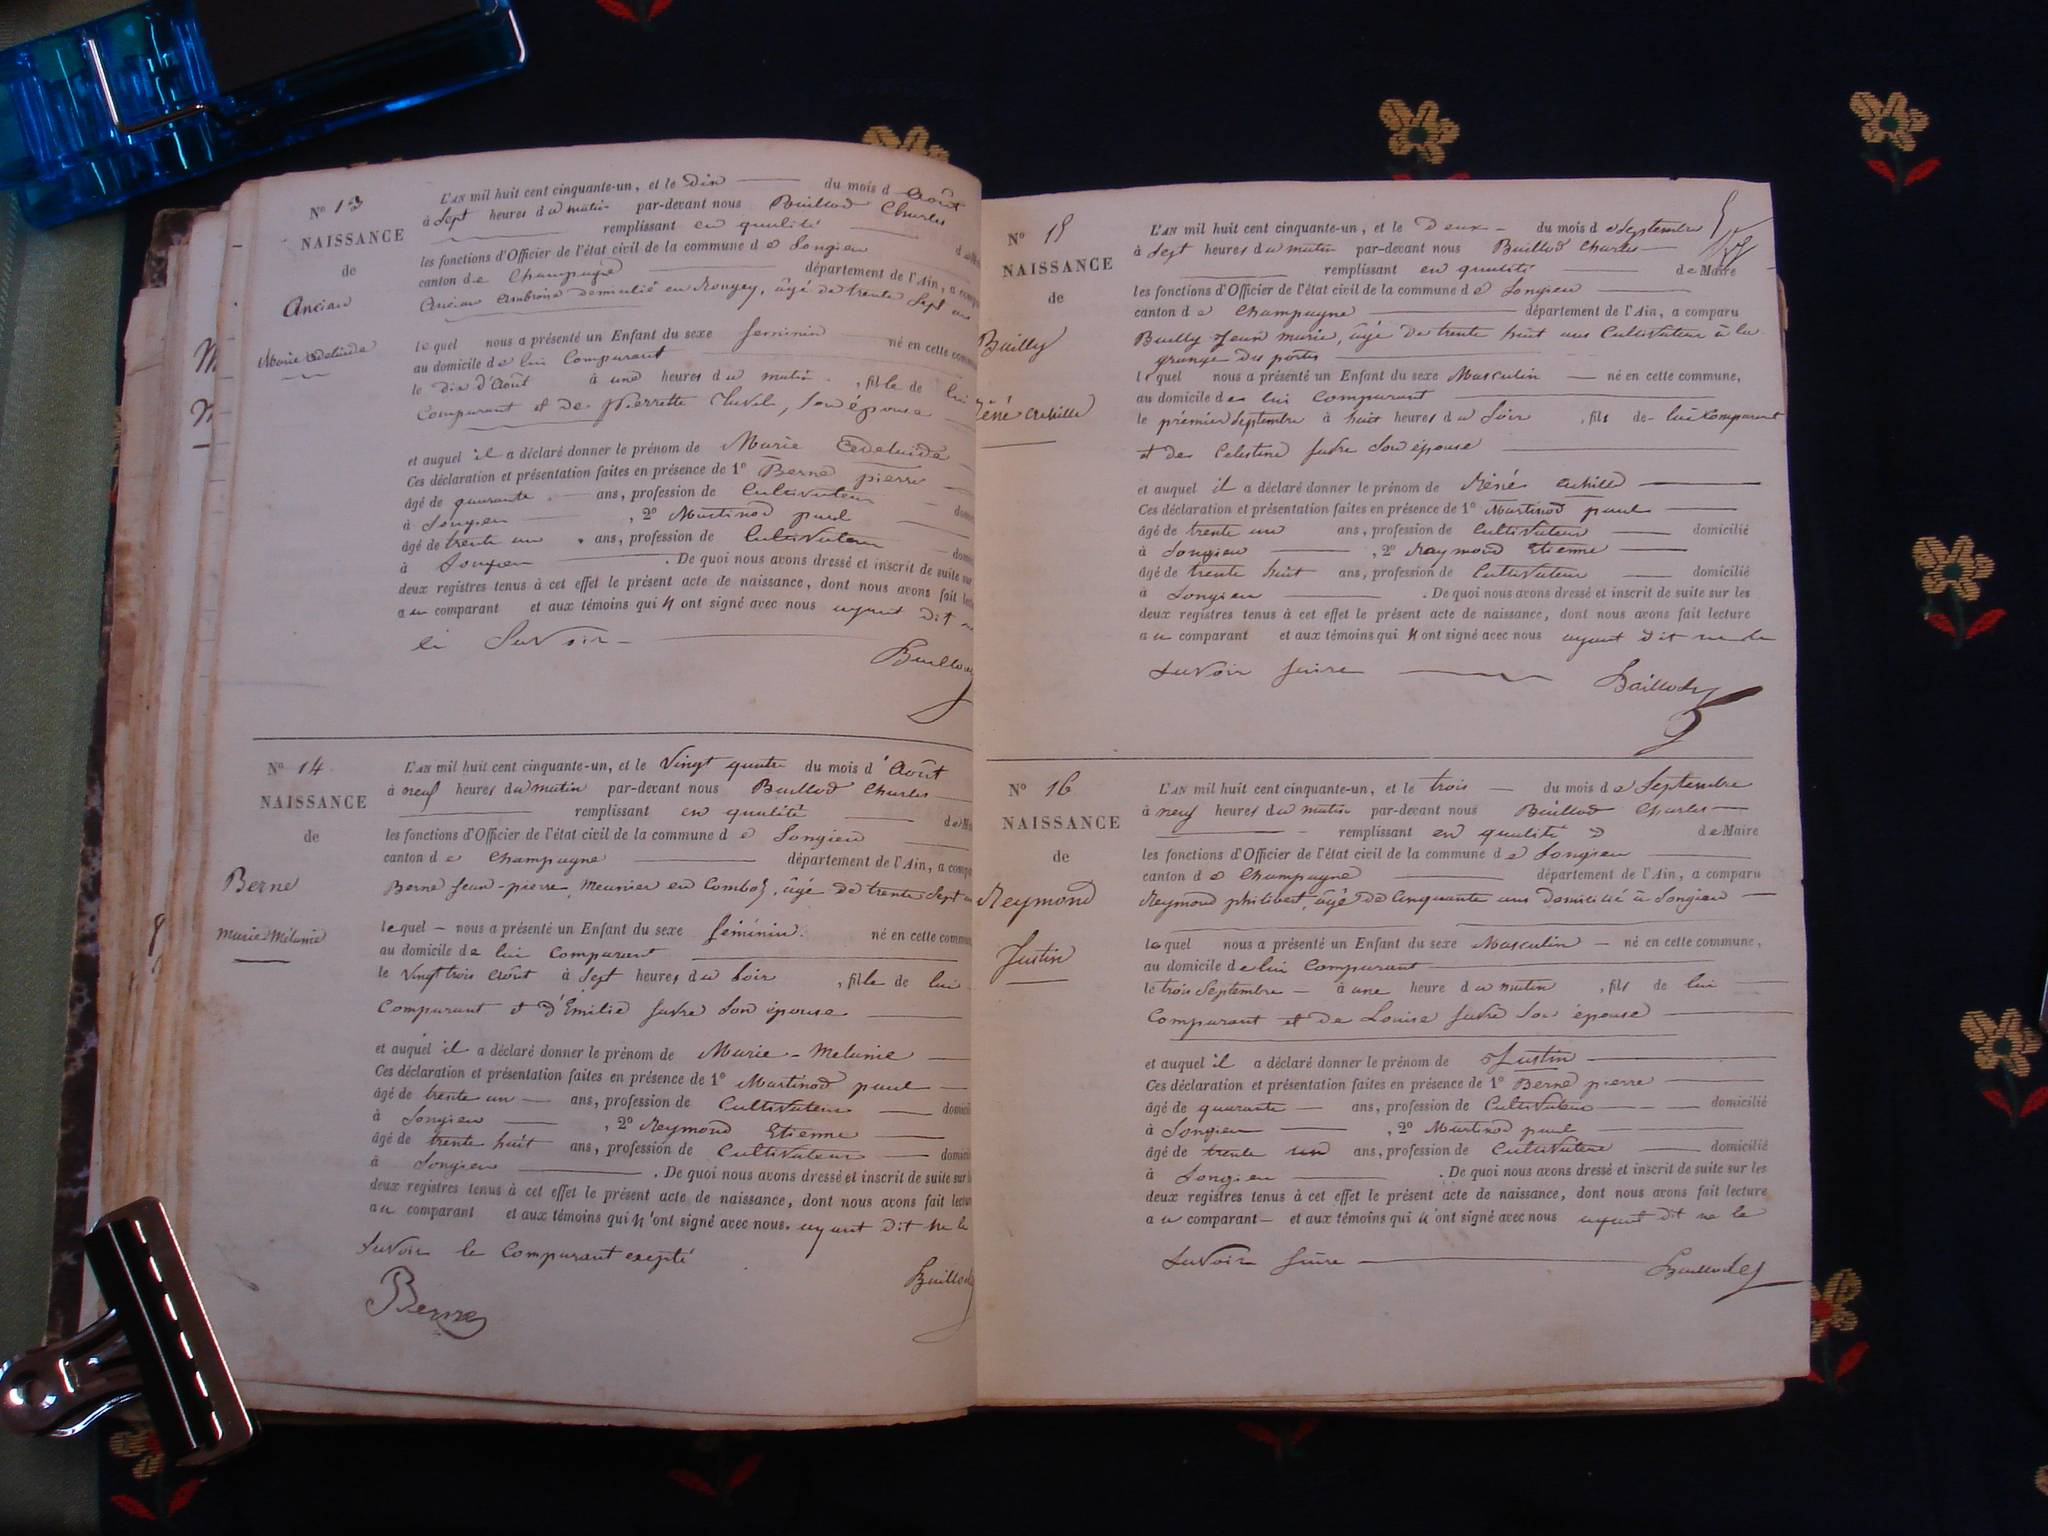 N° 13
NAISSANCE
de
Ancian
Marie Adelaide
L'AN mil huit cent cinquante-un, et le Dix du mois d Août
à Sept heures du matin par-devant nous Baillod Charles
remplissant en qualité
les fonctions d'Officier de l'état civil de la commune de Songieu
canton de Champagne département de l'Ain, a comp
Ancian Ambroise domicilié en , âgé de trente Sept ans
lequel nous a présenté un Enfant du sexe feminin né en cette comm
au domicile de lui Comparant
le dix d'Août à une heures du matin , fille de lui
Comparant et de Pierrette , son épouse
et auquel il a déclaré donner le prénom de Marie Adelaide
Ces déclaration et présentation faites en présence de 1° Berne pierre
âgé de quarante ans, profession de Cultivateur
à Songieu , 2° Martinod paul domi
âgé de trente un ans, profession de Cultivateur domi
à Songieu . De quoi nous avons dressé et inscrit de suite sur
deux registres tenus à cet effet le présent acte de naissance, dont nous avons fait lect
au comparant et aux témoins qui n ont signé avec nous ayant dit n
le Savoir
Baillod
N° 14
NAISSANCE
de
Berne
Marie Mélanie
L'AN mil huit cent cinquante-un, et le Vingt quatre du mois d'Août
à neuf heures du matin par-devant nous Baillod Charles
remplissant en qualité de M
les fonctions d'Officier de l'état civil de la commune de Songieu
canton de Champagne département de l'Ain, a comp
Berne Jean-pierre, Meunier en Combaz, âgé de trente Sept a
lequel nous a présenté un Enfant du sexe féminin né en cette commu
au domicile de lui Comparant
le Vingt trois Août à Sept heures du Soir , fille de lui
Comparant et d'Emilie favre Son épouse
et auquel il a déclaré donner le prénom de Marie-Melanie
Ces déclaration et présentation faites en présence de 1° Martinod paul
âgé de trente un ans, profession de Cultivateur domicil
à Songieu , 2° Reymond Etienne
âgé de trente huit ans, profession de Cultivateur domici
à Songieu . De quoi nous avons dressé et inscrit de suite sur l
deux registres tenus à cet effet le présent acte de naissance, dont nous avons fait lectur
au comparant et aux témoins qui n'ont signé avec nous. ayant dit ne le
Savoir le Comparant excepté
Berne
Baillod
N° 15
NAISSANCE
de
Bailly
Réné Achille
L'AN mil huit cent cinquante-un, et le Deux du mois de Septembre
à Sept heures du matin par-devant nous Baillod Charles
remplissant en qualité de Maire
les fonctions d'Officier de l'état civil de la commune de Songieu
canton de Champagne département de l'Ain, a comparu
Bailly Jean marie, âgé de trente huit ans Cultivateur à la
grange des portes
lequel nous a présenté un Enfant du sexe Masculin né en cette commune,
au domicile de lui Comparant
le prémier Septembre à huit heures du Soir , fils de lui Comparant
et de Celestine favre Son épouse
et auquel il a déclaré donner le prénom de Réné Achille
Ces déclaration et présentation faites en présence de 1° Martinod paul
âgé de trente un ans, profession de Cultivateur domicilié
à Songieu , 2° Raymond Etienne
âgé de trente huit ans, profession de Cultivateur domicilié
à Songieu . De quoi nous avons dressé et inscrit de suite sur les
deux registres tenus à cet effet le présent acte de naissance, dont nous avons fait lecture
au comparant et aux témoins qui n ont signé avec nous ayant dit ne le
Savoir faire
Baillod
N° 16
NAISSANCE
de
Reymond
Justin
L'AN mil huit cent cinquante-un, et le trois du mois de Septembre
à neuf heures du matin par-devant nous Baillod Charles
remplissant en qualité de Maire
les fonctions d'Officier de l'état civil de la commune de Songieu
canton de Champagne département de l'Ain, a comparu
Reymond philibert, âgé de Cinquante ans domicilié à Songieu
lequel nous a présenté un Enfant du sexe Masculin né en cette commune,
au domicile de lui Comparant
le trois Septembre à une heure du matin , fils de lui
Comparant et de Louise favre Son épouse
et auquel il a déclaré donner le prénom de Justin
Ces déclaration et présentation faites en présence de 1° Berne pierre
âgé de quarante ans, profession de Cultivateur domicilié
à Songieu , 2° Martinod paul
âgé de trente un ans, profession de Cultivateur domicilié
à Songieu . De quoi nous avons dressé et inscrit de suite sur les
deux registres tenus à cet effet le présent acte de naissance, dont nous avons fait lecture
au comparant et aux témoins qui n'ont signé avec nous ayant dit ne le
Savoir faire
Baillod